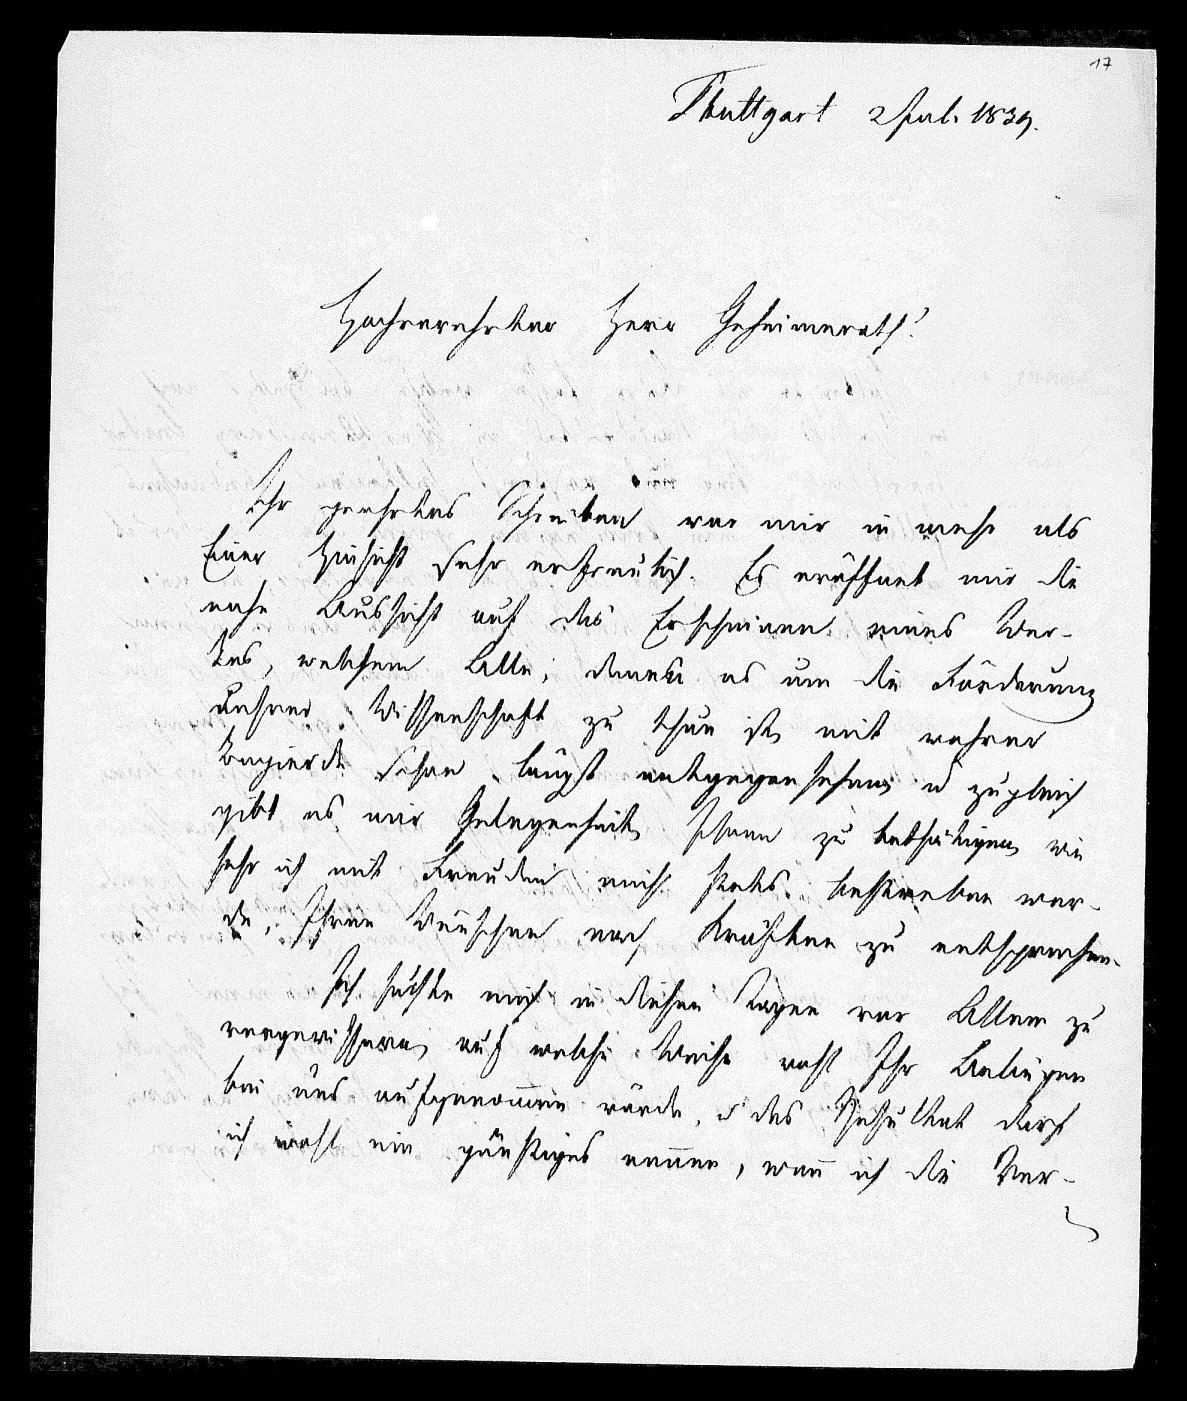 17
Stuttgart 2 Jul. 1839.
Hochverehrter Herr Geheimerath!
Ihr geehrtes Schreiben war mir in mehr als
Einer Hinsicht sehr erfreulich. Es eröffnet mir die
nahe Aussicht auf das Erscheinen eines Wer-
kes, welchem Alle, denen es um die Förderung
wahrer Wissenschaft zu thun ist, mit wahrer
Begierde schon längst entgegensehen, u zugleich
gibt es mir Gelegenheit, Ihnen zu bethätigen, wie
sehr ich mit Freuden mich stets bestreben wer-
de, Ihren Wünschen nach Kräften zu entsprechen.
Ich suchte mich in diesen Tagen vor Allem zu
vergewissern, auf welche Weise wohl Ihr Anliegen
bei uns aufgenommen würde, u das Resultat darf
ich wohl ein günstiges nennen, wenn ich die Ver-